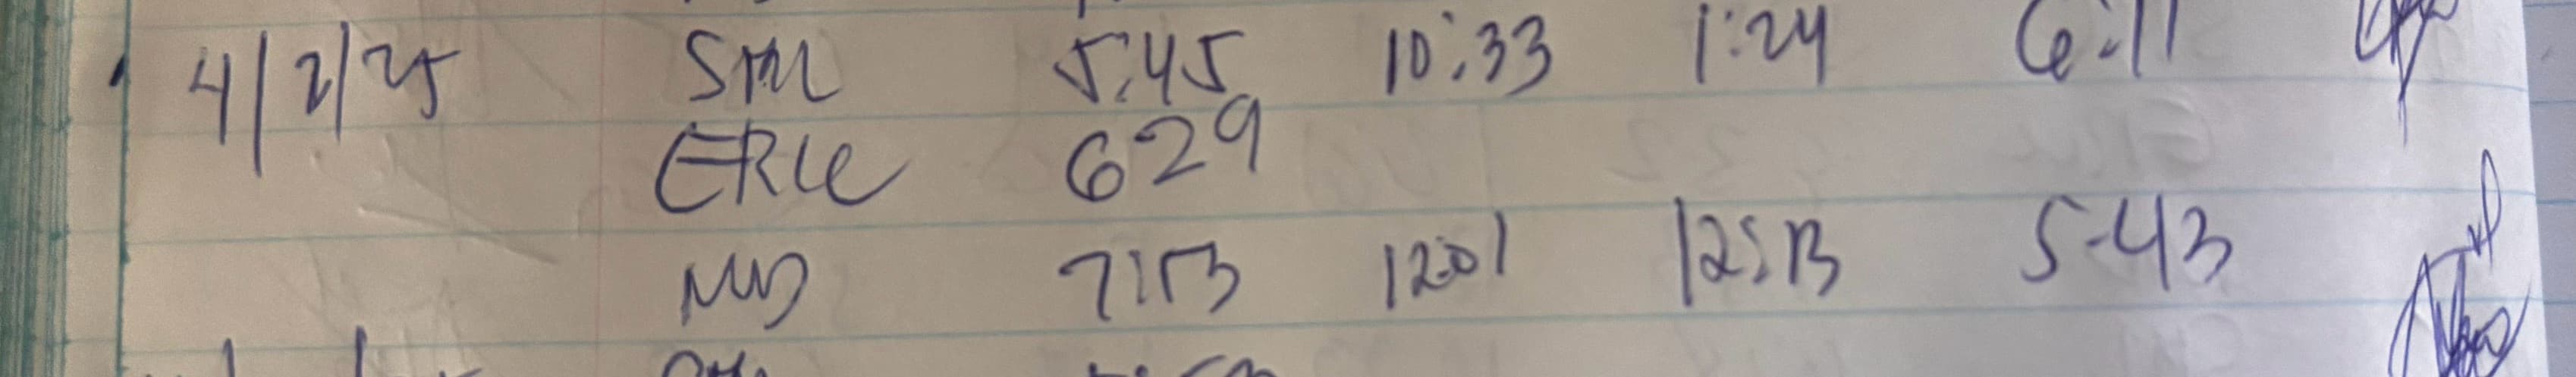 4/2/25 SML 5:45 10:33 1:24 6:11
ERLE 629
7:53 12:01 12:13 5-43